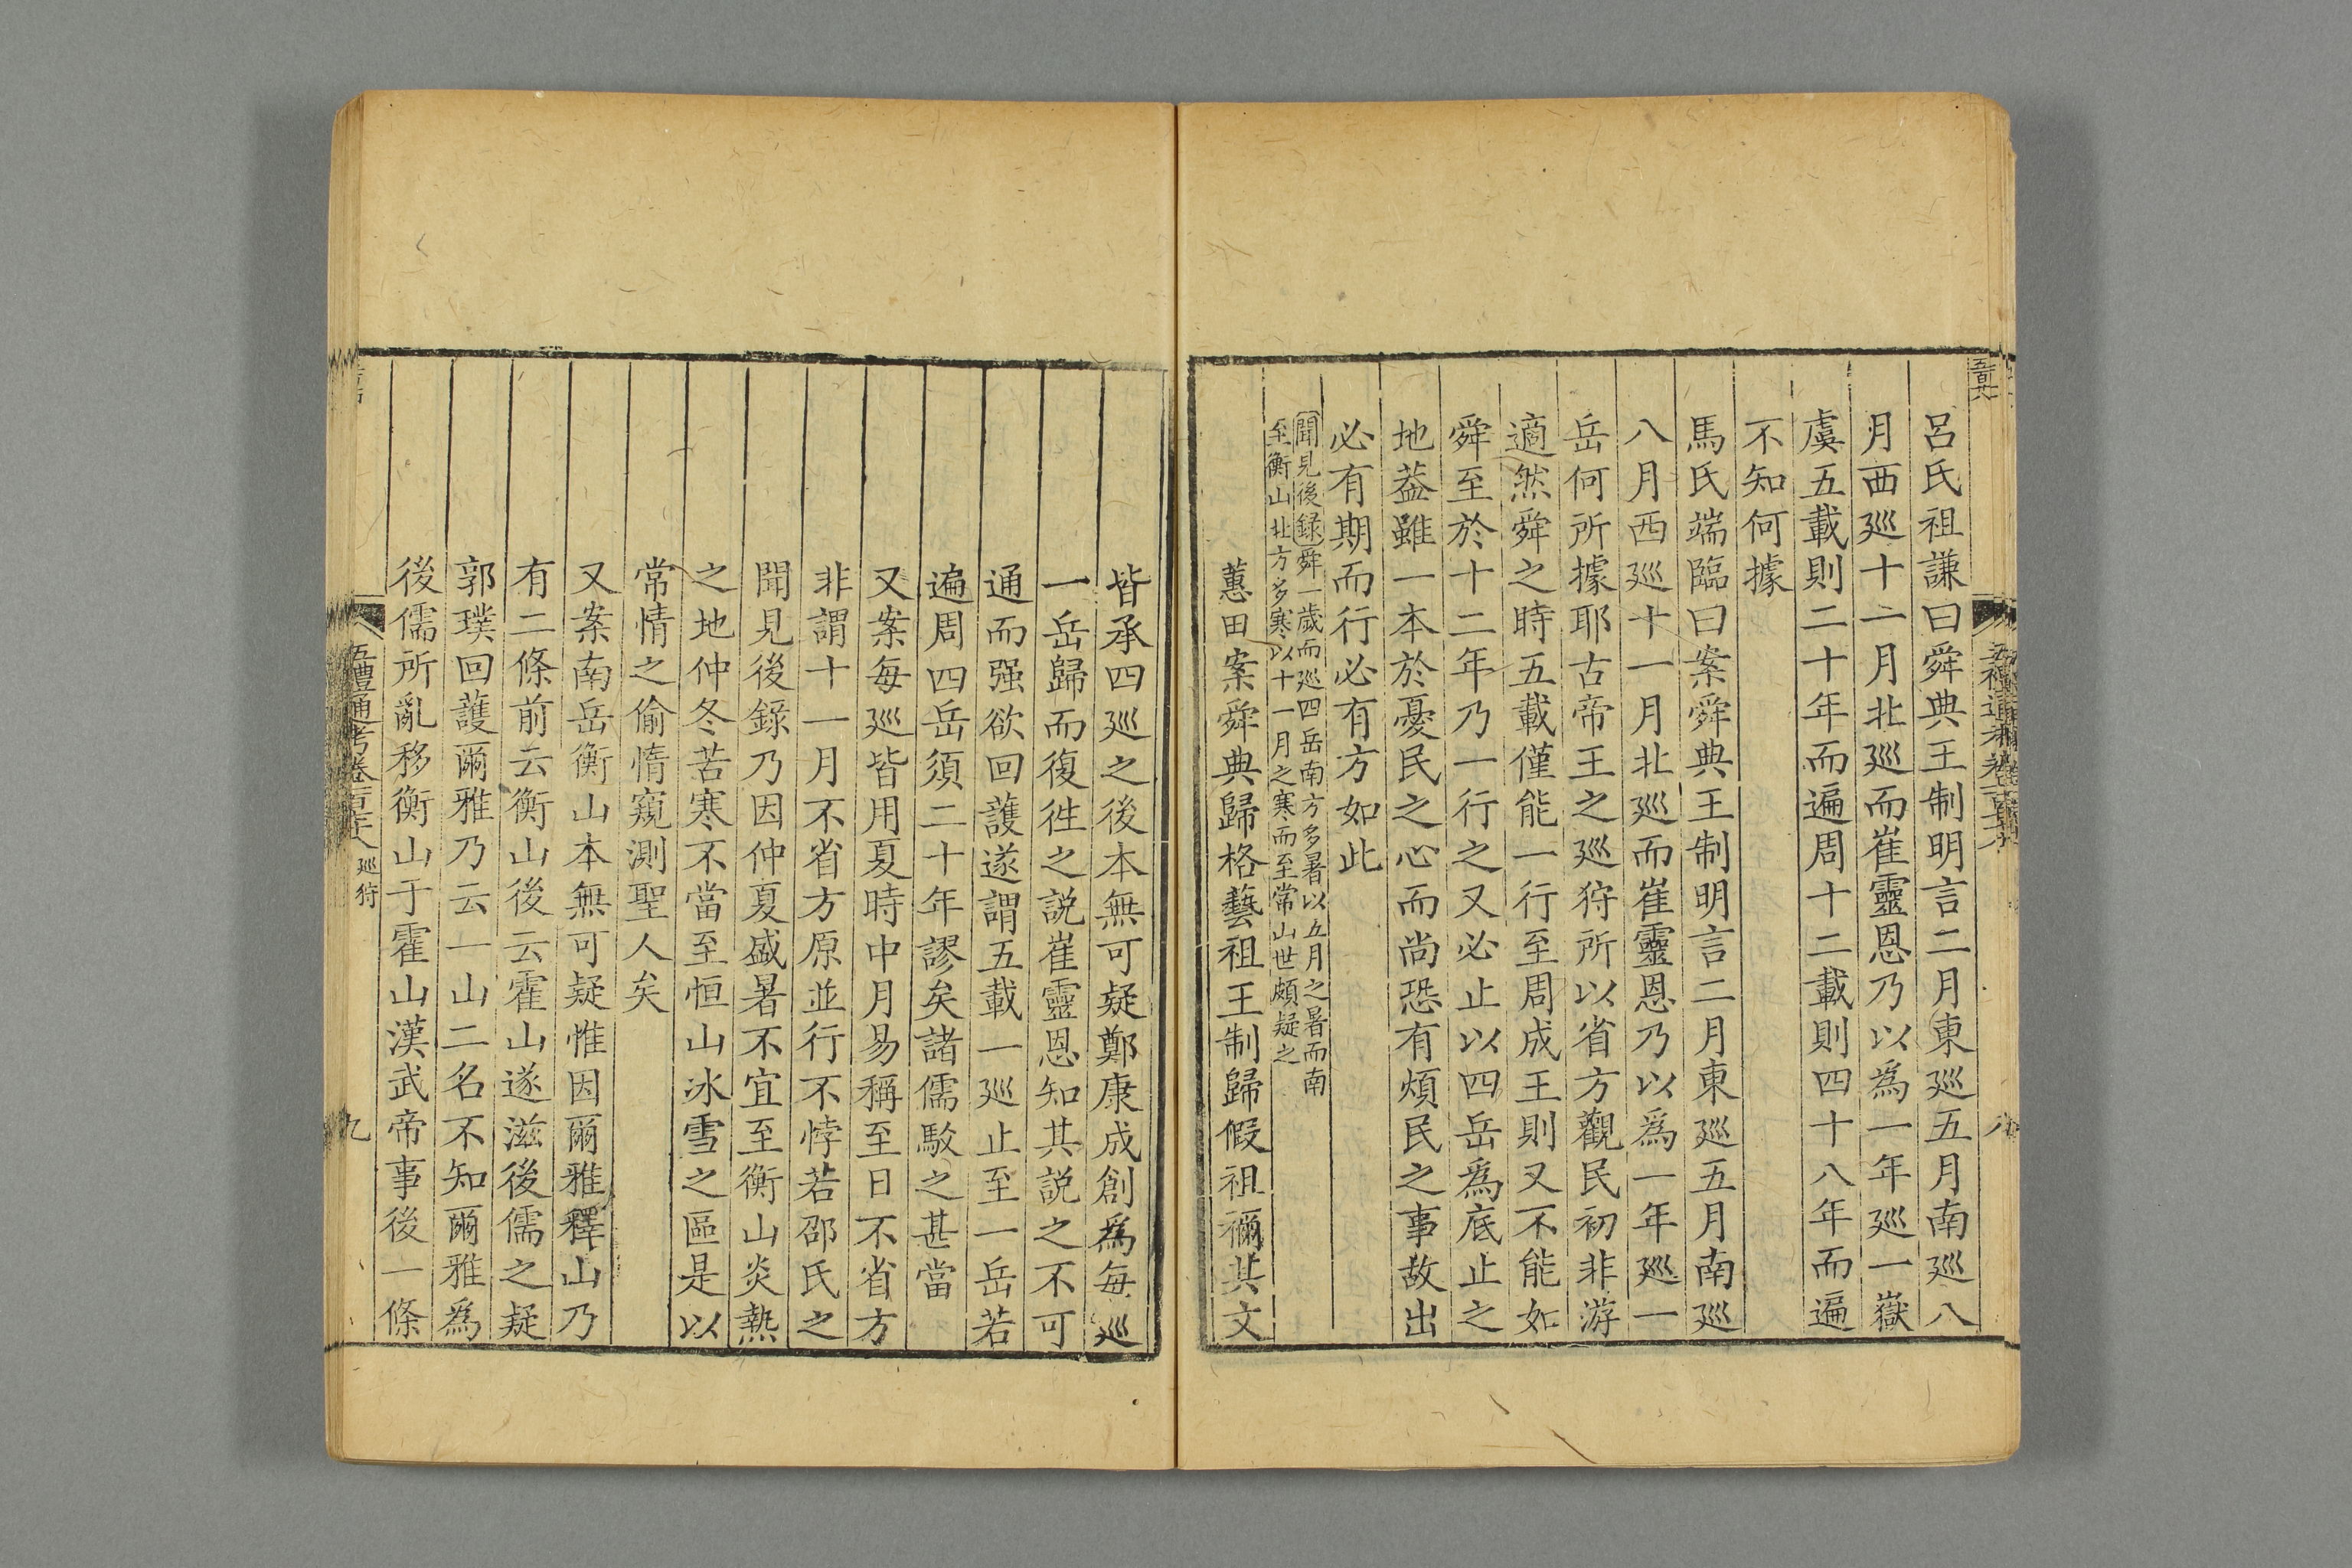 呂氏祖謙曰舜典王制明言二月東廵五月南廵八
月西廵十一月北廵而崔靈恩乃以為一年廵一嶽
虞五載則二十年而遍周十二載則四十八年而遍
不知何據
馬氏端臨曰案舜典王制明言二月東廵五月南廵
八月西廵十一月北廵而崔靈恩乃以為一年廵一
岳何所據耶古帝王之廵狩所以省方觀民初非游
適然舜之時五載僅能一行至周成王則又不能如
舜至於十二年乃一行之又必止以四岳為底止之
地葢雖一本於憂民之心而尚恐有煩民之事故出
必有期而行必有方如此
聞見後録舜一歲而廵四岳南方多暑以五月之暑而南
至衡山北方多寒以十一月之寒而至常山世頗疑之
蕙田案舜典歸格藝祖王制歸假祖禰其文
皆承四廵之後本無可疑鄭康成創為每廵
一岳歸而復徃之説崔靈恩知其説之不可
通而强欲回護遂謂五載一廵止至一岳若
遍周四岳須二十年謬矣諸儒駁之甚當
又案每廵皆用夏時中月易稱至日不省方
非謂十一月不省方原並行不悖若邵氏之
聞見後録乃因仲夏盛暑不宜至衡山炎熱
之地仲冬苦寒不當至恒山冰雪之區是以
常情之偷惰窺測聖人矣
又案南岳衡山本無可疑惟因爾雅釋山乃
有二條前云衡山後云霍山遂滋後儒之疑
郭璞回護爾雅乃云一山二名不知爾雅為
後儒所亂移衡山于霍山漢武帝事後一條
五禮通考卷一百七十八 廵狩
九